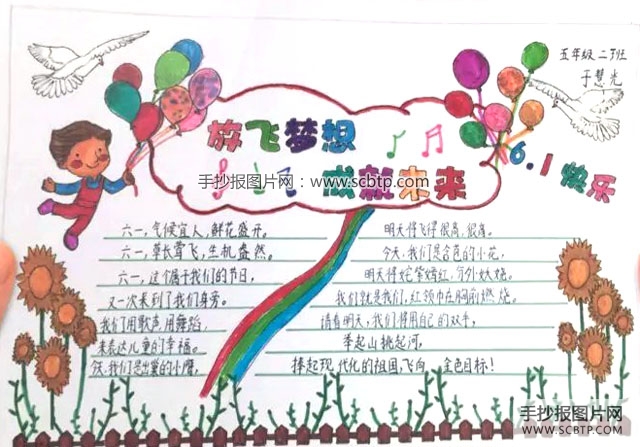 五年级二班
于慧光
放飞梦想
成就未来
6.1快乐
手抄报图片网：www.scbtp.com
六一，气候宜人，鲜花盛开。
六一，草长莺飞，生机盎然。
六一，这个属于我们的节日，
又一次来到了我们身旁。
我们用歌声，用舞蹈，
来表达儿童的幸福。
今天，我们是出巢的小鹰，
明天得飞得很高，很高。
今天，我们是含苞的小花，
明天得姹紫嫣红，分外妖娆。
我们就是我们，红领巾在胸前燃烧。
请看明天，我们将用自己的双手，
举起山挑起河，
捧起现代化的祖国，飞向金色目标！
手抄报图片网
WWW.SCBTP.COM